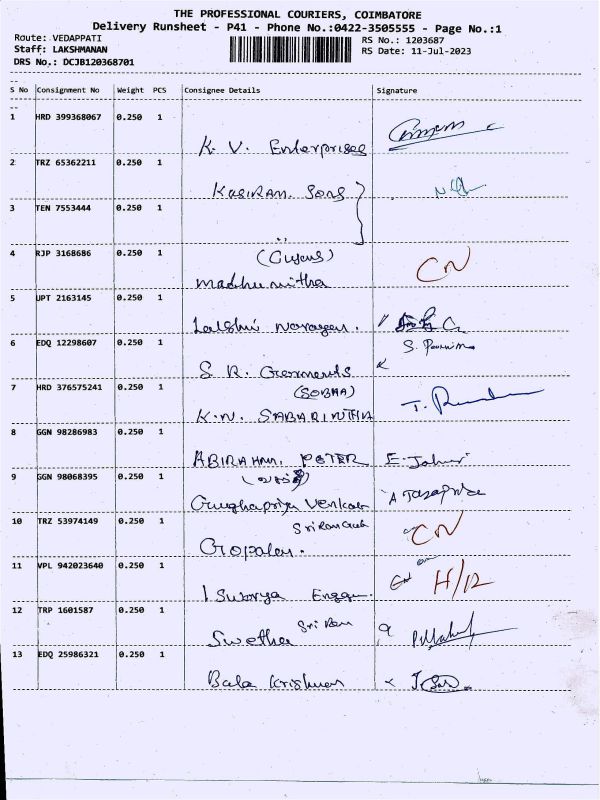 THE PROFESSIONAL COURIERS, COIMBATORE
Delivery Runsheet - P41 - Phone No.:0422-3505555 - Page No.:1
Route: VEDAPPATI RS No.: 1203687
Staff: LAKSHMANAN RS Date: 11-Jul-2023
DRS No.: DCJB120368701
S No Consignment No Weight PCS Consignee Details Signature
1 HRD 399368067 0.250 1
K. V. Enterprises
2 TRZ 65362211 0.250 1
KASIRAM. Sons
3 TEN 7553444 0.250 1
4 RJP 3168686 0.250 1
madhu mitha CN
5 UPT 2163145 0.250 1
Lakshmi Narayan.
6 EDQ 12298607 0.250 1 S. Pournima
S. R. Garments
7 HRD 376575241 0.250 1 (SOBHA)
K.N. SABARINTHA
8 GGN 98286983 0.250 1
ABIRAHAM. PETER
9 GGN 98068395 0.250 1
Venkat
10 TRZ 53974149 0.250 1
Gopalan. CN
11 VPL 942023640 0.250 1
Iswarya H/12
12 TRP 1601587 0.250 1 Sri Ram
Swetha
13 EDQ 25986321 0.250 1
Bala Krishnan